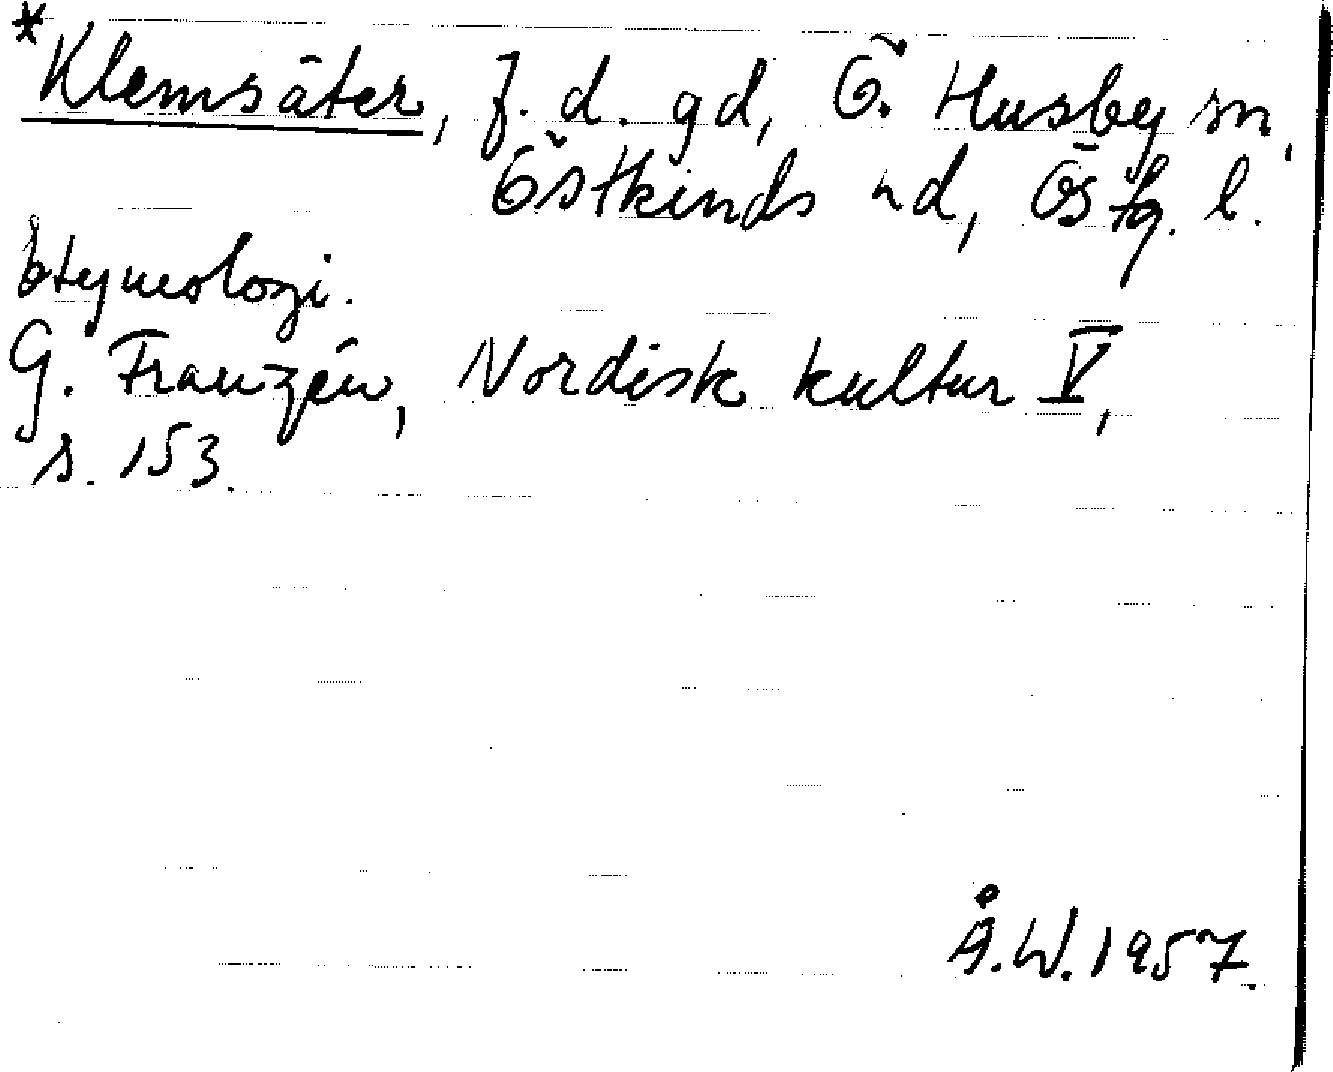 *Klemsäter, f. d. gd, Ö. Husby sn,
Östkinds hd, Östg. l.
Etymologi.
G. Franzén, Nordisk kultur V,
s. 153.
Å.W. 1957.